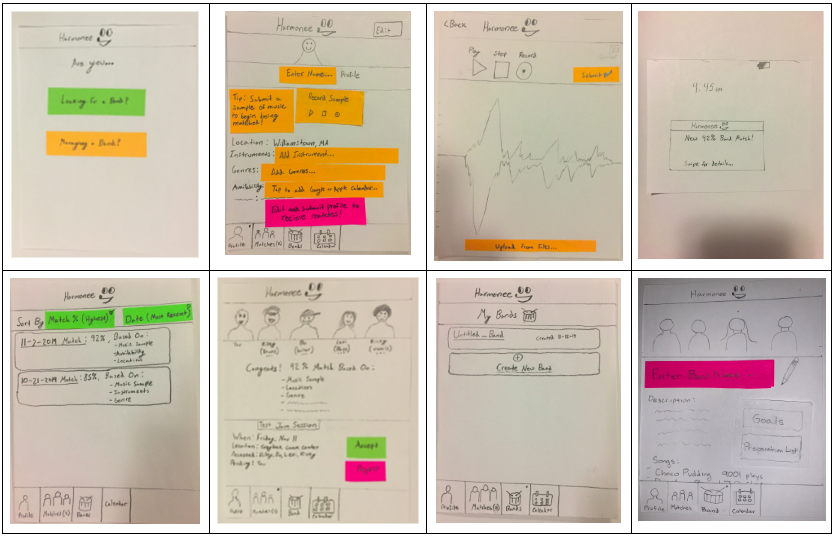 Harmonee
Are you...
Looking for a Band?
Managing a Band?
Harmonee
Edit
Enter Name... Profile
Tip: Submit a
sample of music
to begin being
matched!
Record Sample
Location: Williamstown, MA
Instruments: Add Instrument...
Genres: Add Genres...
Availability: Tap to add Google or Apple Calendar...
Edit and submit profile to
recieve matches!
Profile
Matches
Bands
Calendar
<Back
Harmonee
Play
Stop
Record
Submit
Upload from Files...
4:45
Harmonee
New 92% Band Match!
Swipe for details...
Harmonee
Sort By
Match % (Highest)
Date (Most Recent)
11-2-2019 Match: 92%, Based On:
- Music Sample
- Availability
- Location
10-21-2019 Match: 85%, Based On:
- Music Sample
- Instruments
- Genre
Profile
Matches
Bands
Calendar
Harmonee
You
Congrats! 92% Match Based On:
- Music Sample
- Locations
- Genre
Test Jam Session
When: Friday, Nov 8
Location:
Pending: You
Accept
Reject
Profile
Matches
Band
Calendar
Harmonee
My Bands
Untitled_Band
created
Create New Band
Profile
Matches
Bands
Calendar
Harmonee
Enter Band Name
Description:
Goals
Preparation List
Songs:
Choco Pudding 9001 plays
Profile
Matches
Calendar